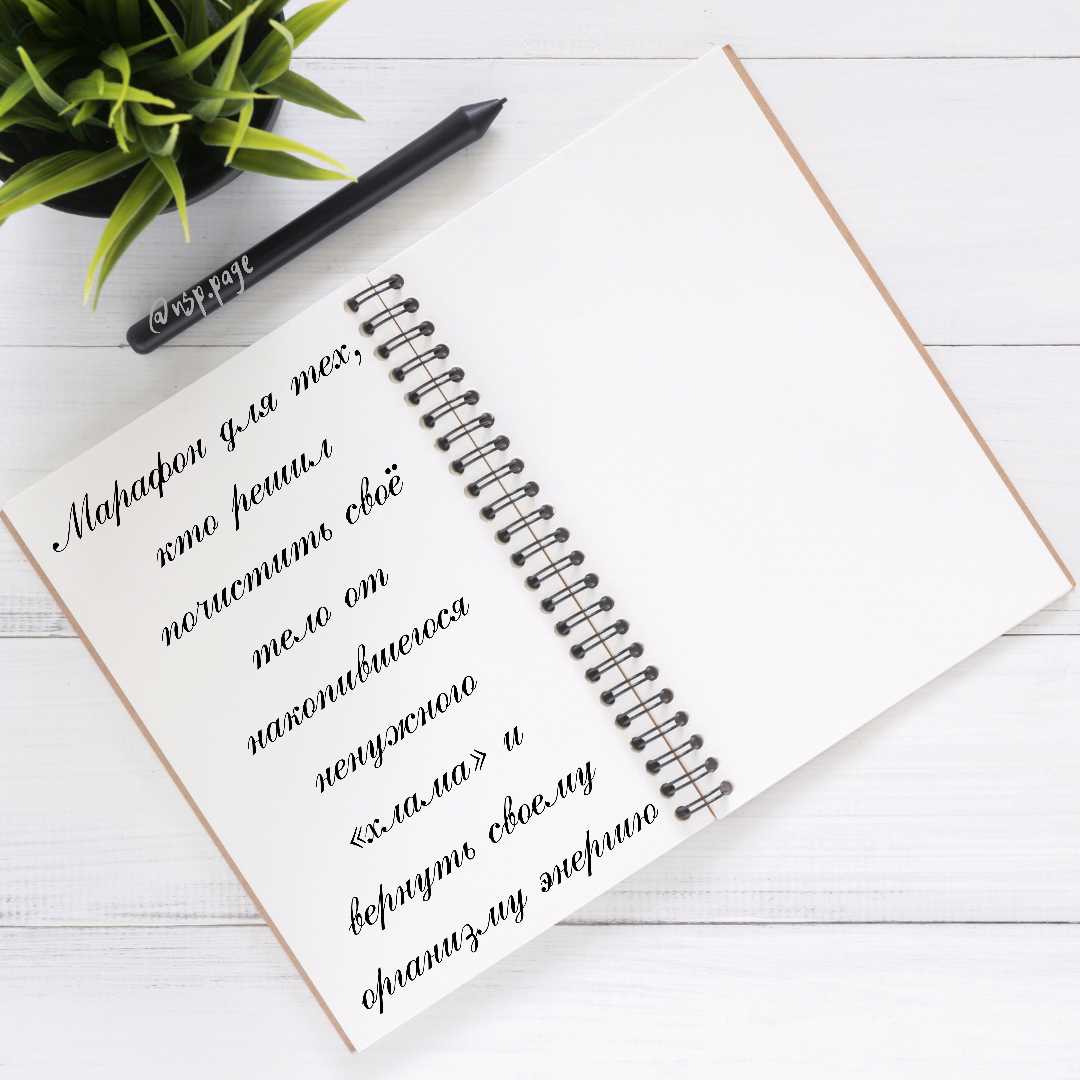 @nsp.page
Марафон для тех,
кто решил
почистить своё
тело от
накопившегося
ненужного
«хлама» и
вернуть своему
организму энергию